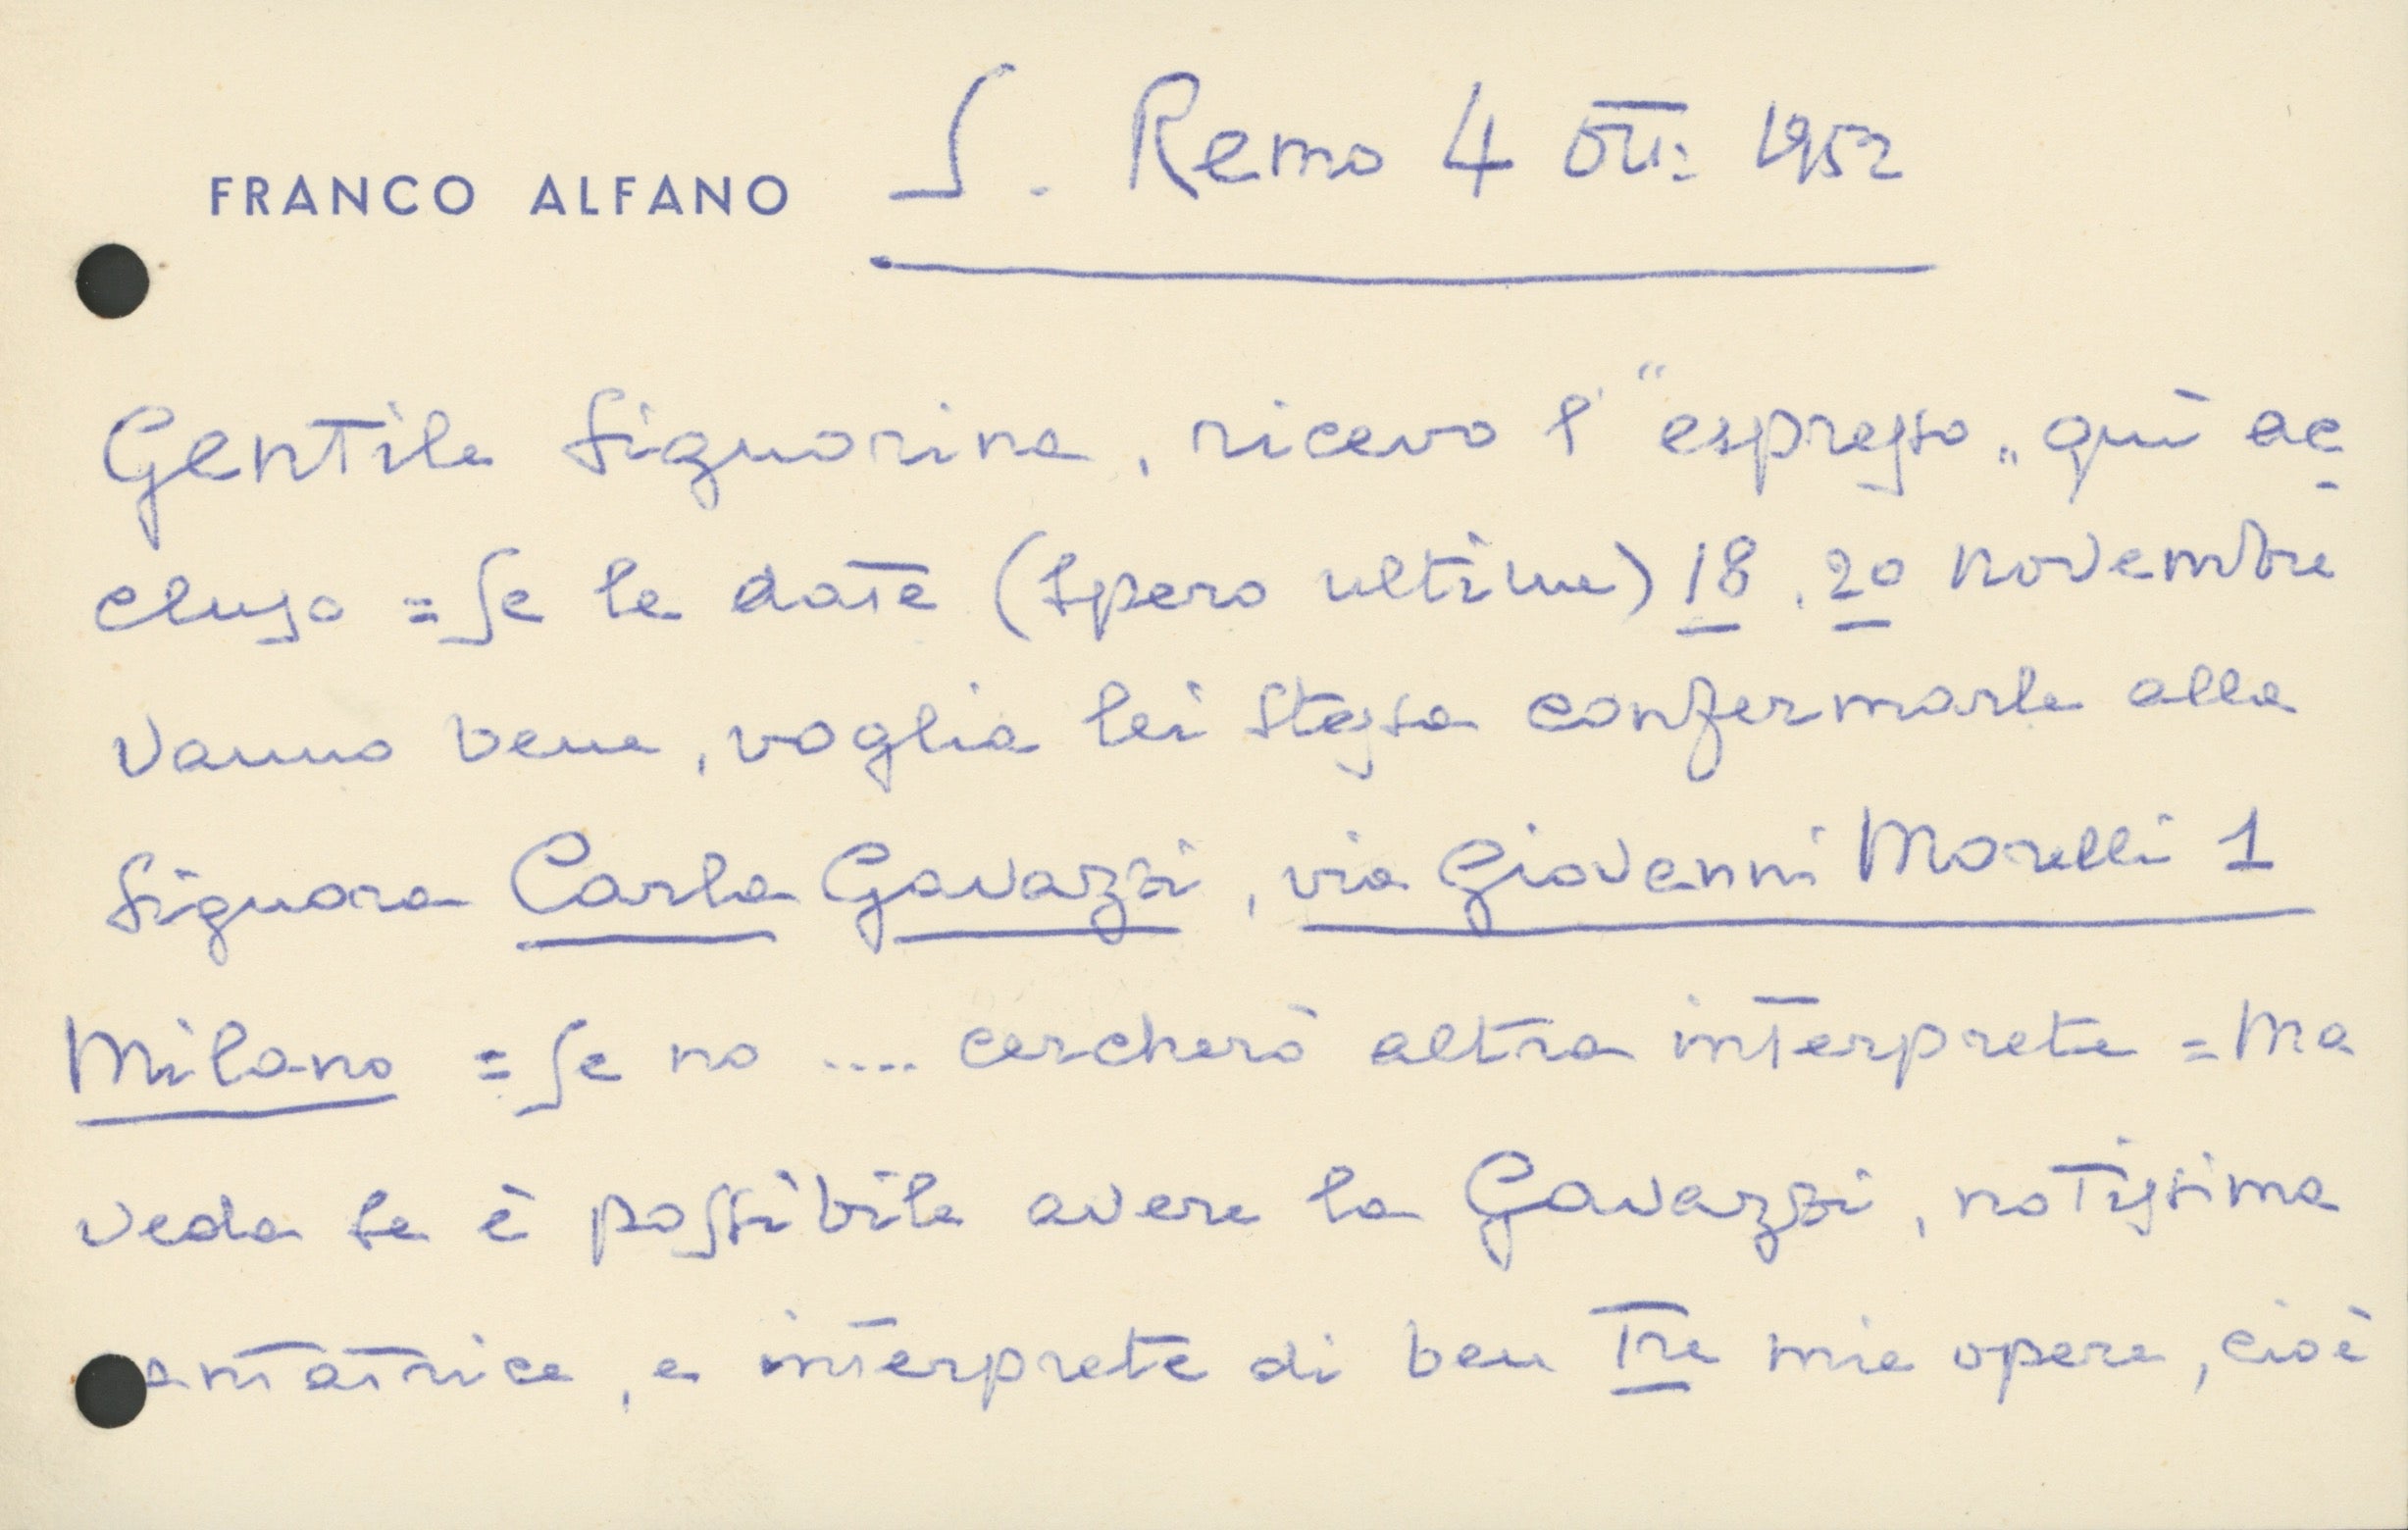 FRANCO ALFANO S. Remo 4 Ott: 1952
Gentile Signorina, ricevo l'"espresso„ quì ac
cluso = Se le date (spero ultime) 18. 20 novembre
vanno bene, voglia lei stessa confermarle alla
Signora Carla Gavazzi, via Giovanni Morelli 1
Milano = Se no .... cercherò altra interprete = Ma
veda se è possibile avere la Gavazzi, notissima
antatrice, e interprete di ben Tre mie opere, cioè